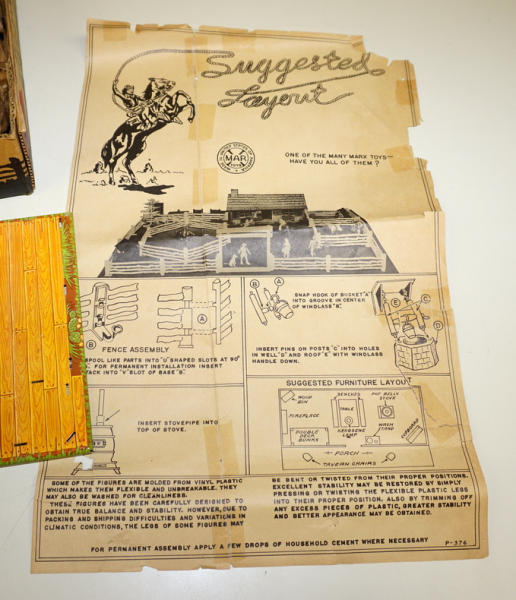 Suggested
Layout
UNITED STATES OF AMERICA
MAR
ONE OF THE MANY MARX TOYS—
HAVE YOU ALL OF THEM ?
B
A
FENCE ASSEMBLY
SPOOL LIKE PARTS INTO "U" SHAPED SLOTS AT 90°
FOR PERMANENT INSTALLATION INSERT
INTO "V" SLOT OF BASE "B".
B
A
SNAP HOOK OF BUCKET "A"
INTO GROOVE IN CENTER
OF WINDLASS "B".
E
C
D
INSERT PINS ON POSTS "C" INTO HOLES
IN WELL "D" AND ROOF "E" WITH WINDLASS
HANDLE DOWN.
INSERT STOVEPIPE INTO
TOP OF STOVE.
SUGGESTED FURNITURE LAYOUT
WOOD
BOX
BENCHES
POT BELLY
STOVE
FIREPLACE
TABLE
DOUBLE
DECK
BUNKS
KEROSENE
LAMP
WASH
STAND
CUPBOARD
PORCH
TAVERN CHAIRS
SOME OF THE FIGURES ARE MOLDED FROM VINYL PLASTIC
WHICH MAKES THEM FLEXIBLE AND UNBREAKABLE. THEY
MAY ALSO BE WASHED FOR CLEANLINESS.
THESE FIGURES HAVE BEEN CAREFULLY DESIGNED TO
OBTAIN TRUE BALANCE AND STABILITY. HOWEVER, DUE TO
PACKING AND SHIPPING DIFFICULTIES AND VARIATIONS IN
CLIMATIC CONDITIONS, THE LEGS OF SOME FIGURES MAY
BE BENT OR TWISTED FROM THEIR PROPER POSITIONS.
EXCELLENT STABILITY MAY BE RESTORED BY SIMPLY
PRESSING OR TWISTING THE FLEXIBLE PLASTIC LEGS
INTO THEIR PROPER POSITION. ALSO BY TRIMMING OFF
ANY EXCESS PIECES OF PLASTIC, GREATER STABILITY
AND BETTER APPEARANCE MAY BE OBTAINED.
FOR PERMANENT ASSEMBLY APPLY A FEW DROPS OF HOUSEHOLD CEMENT WHERE NECESSARY
P-376